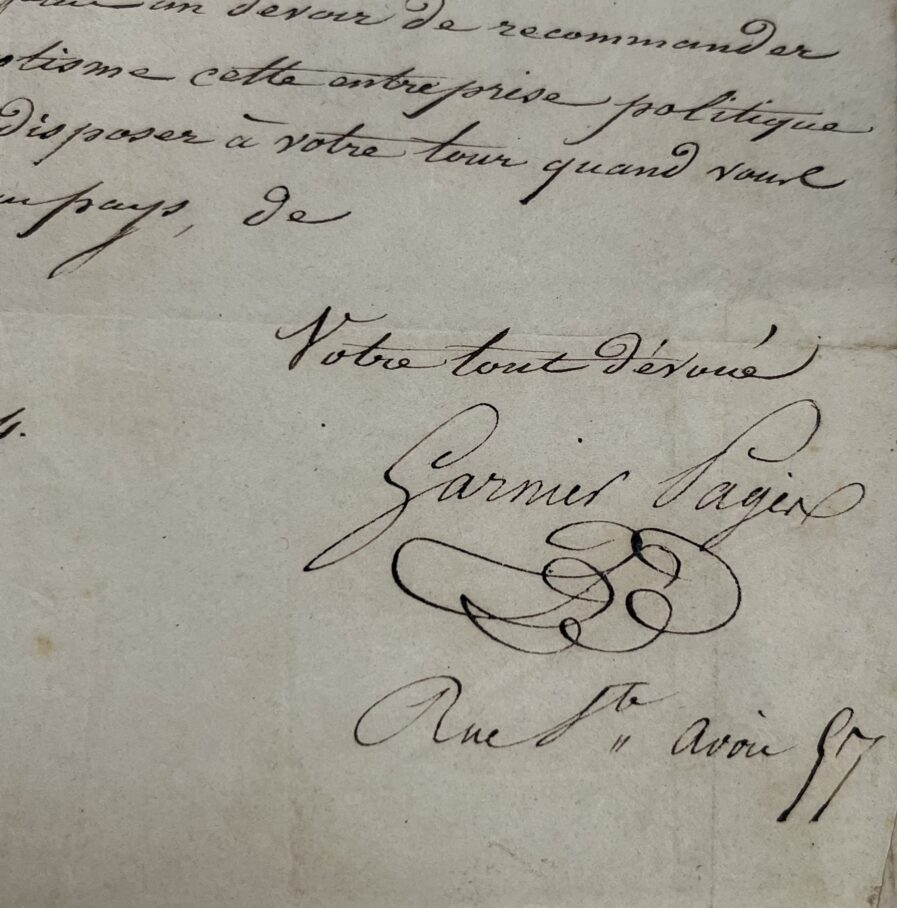 un devoir de recommander
otisme cette entreprise politique
disposer à votre tour quand vous
pays, de
Votre tout dévoué
4.
Garnier Pagès
Rue Ste avoie 57